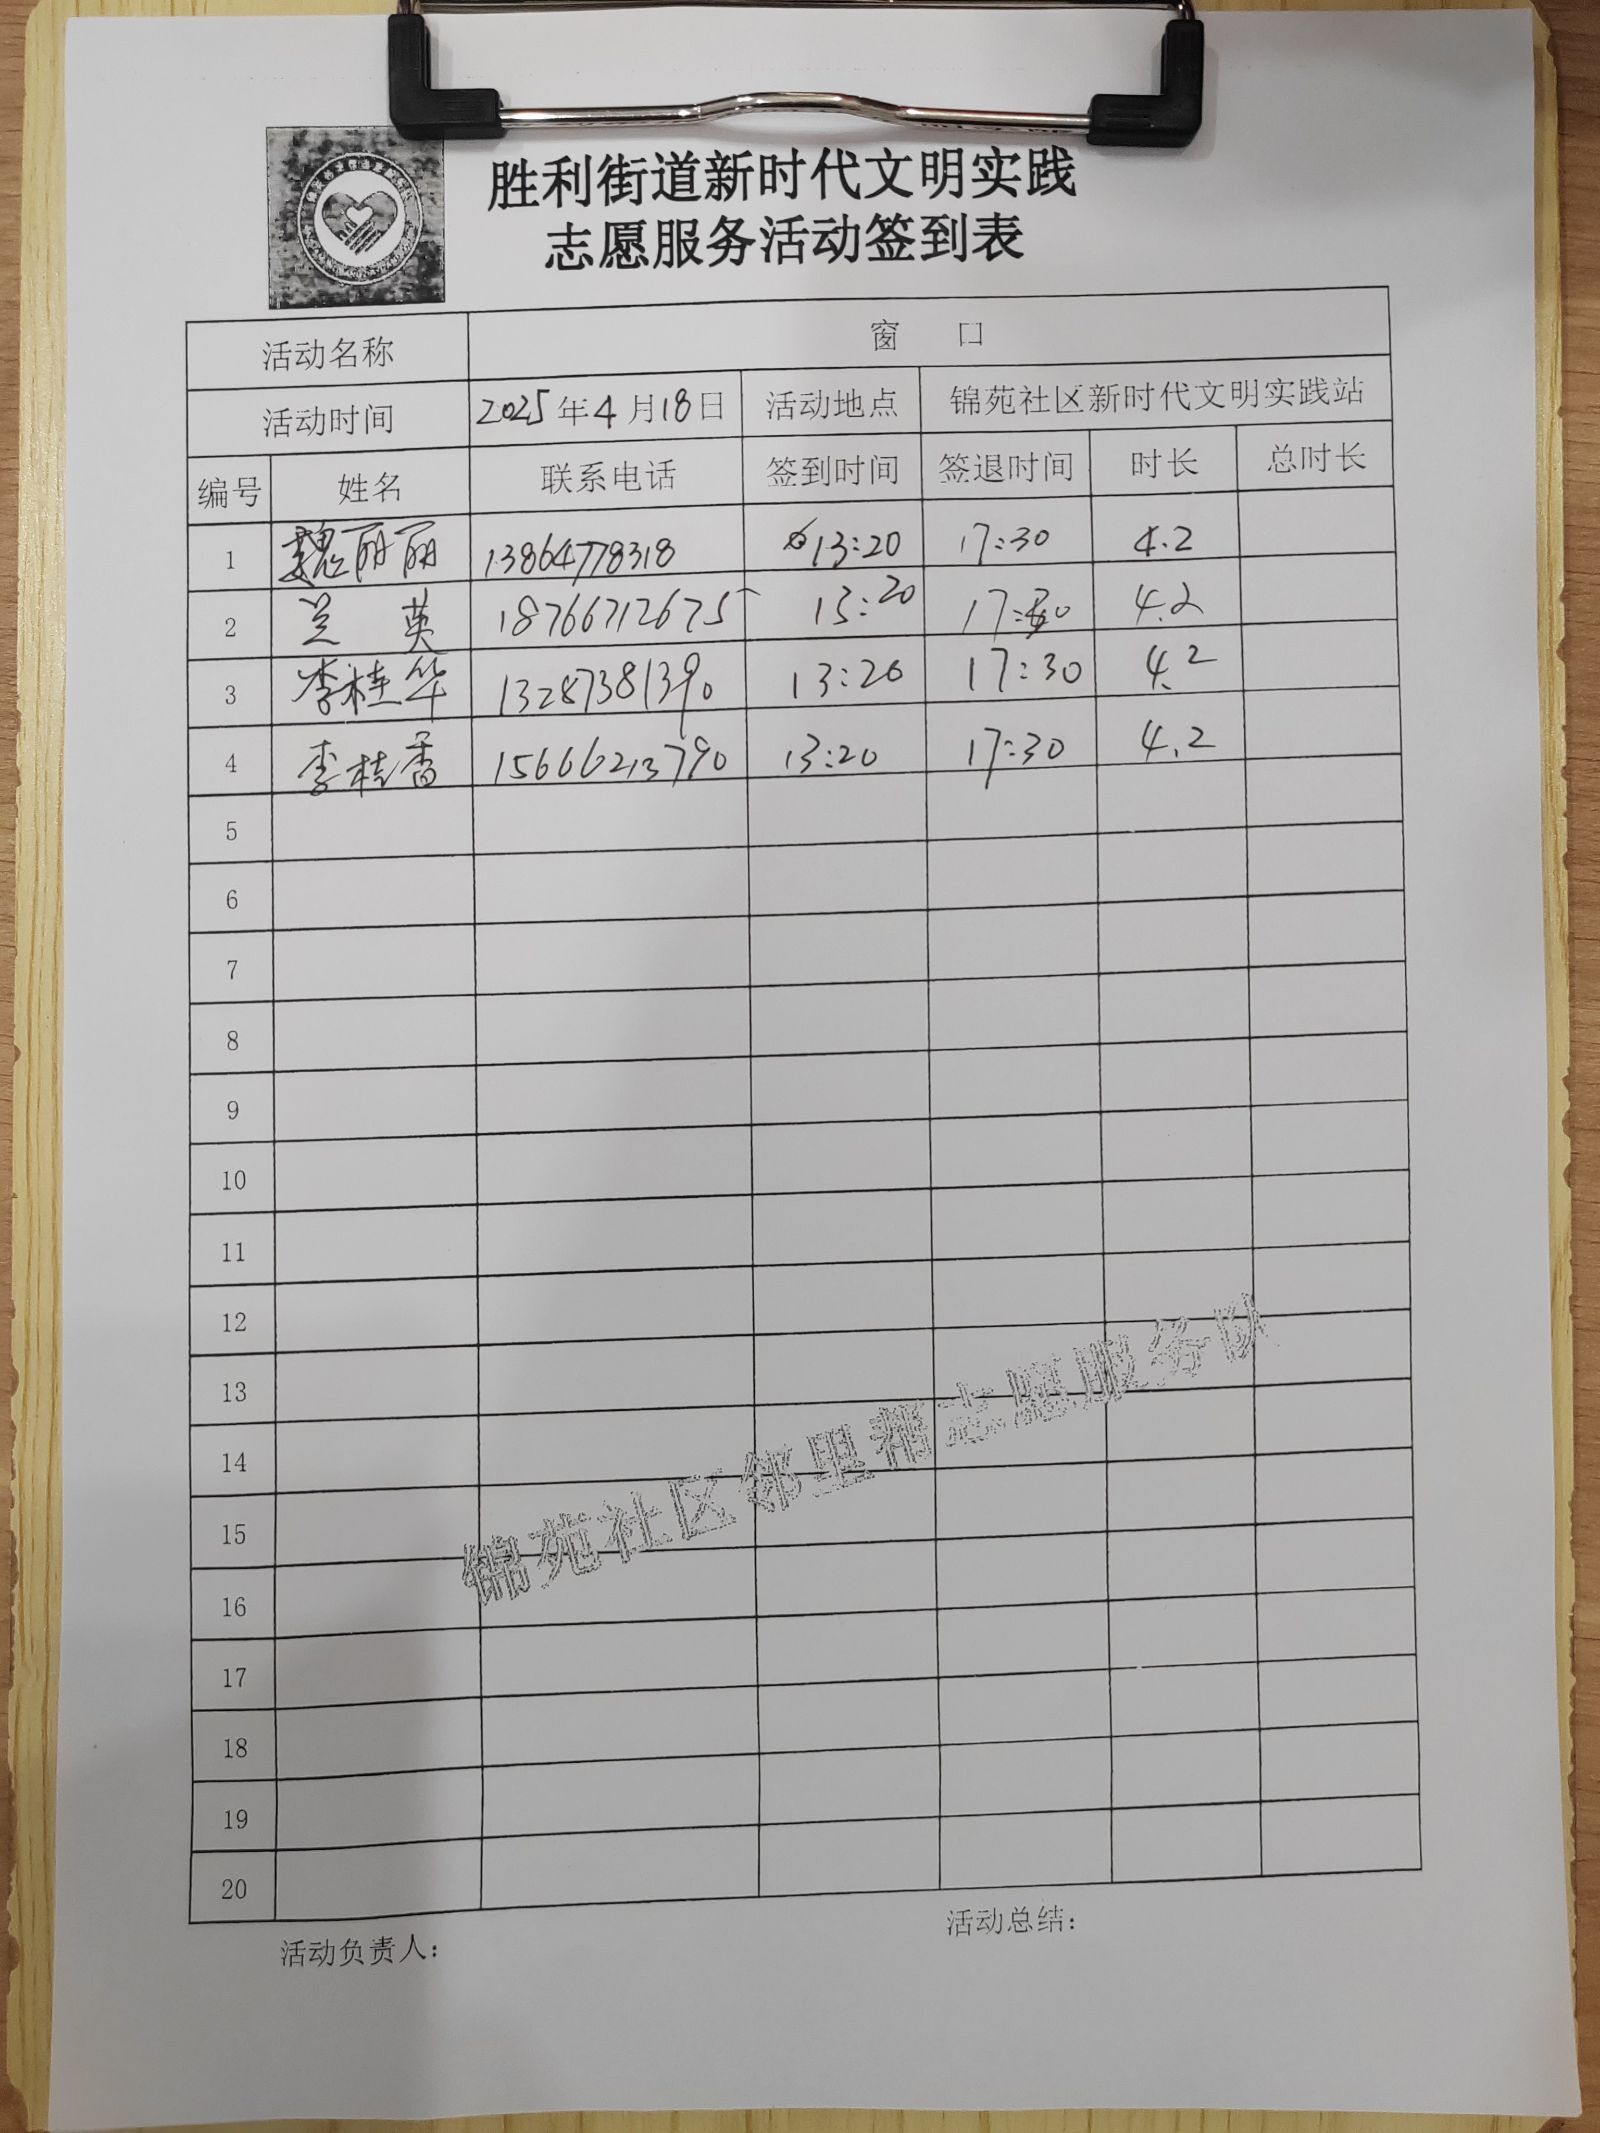 胜利街道新时代文明实践
志愿服务活动签到表
活动名称 窗 口
活动时间 2025年4月18日 活动地点 锦苑社区新时代文明实践站
编号 姓名 联系电话 签到时间 签退时间 时长 总时长
1 魏丽丽 13864778318 13:20 17:30 4.2
2 兰英 18766712675 13:20 17:30 4.2
3 李桂华 13287381390 13:20 17:30 4.2
4 李桂香 15666213790 13:20 17:30 4.2
5
6
7
8
9
10
11
12
13
14
15
16
17
18
19
20
锦苑社区邻里帮志愿服务队
活动负责人： 活动总结：